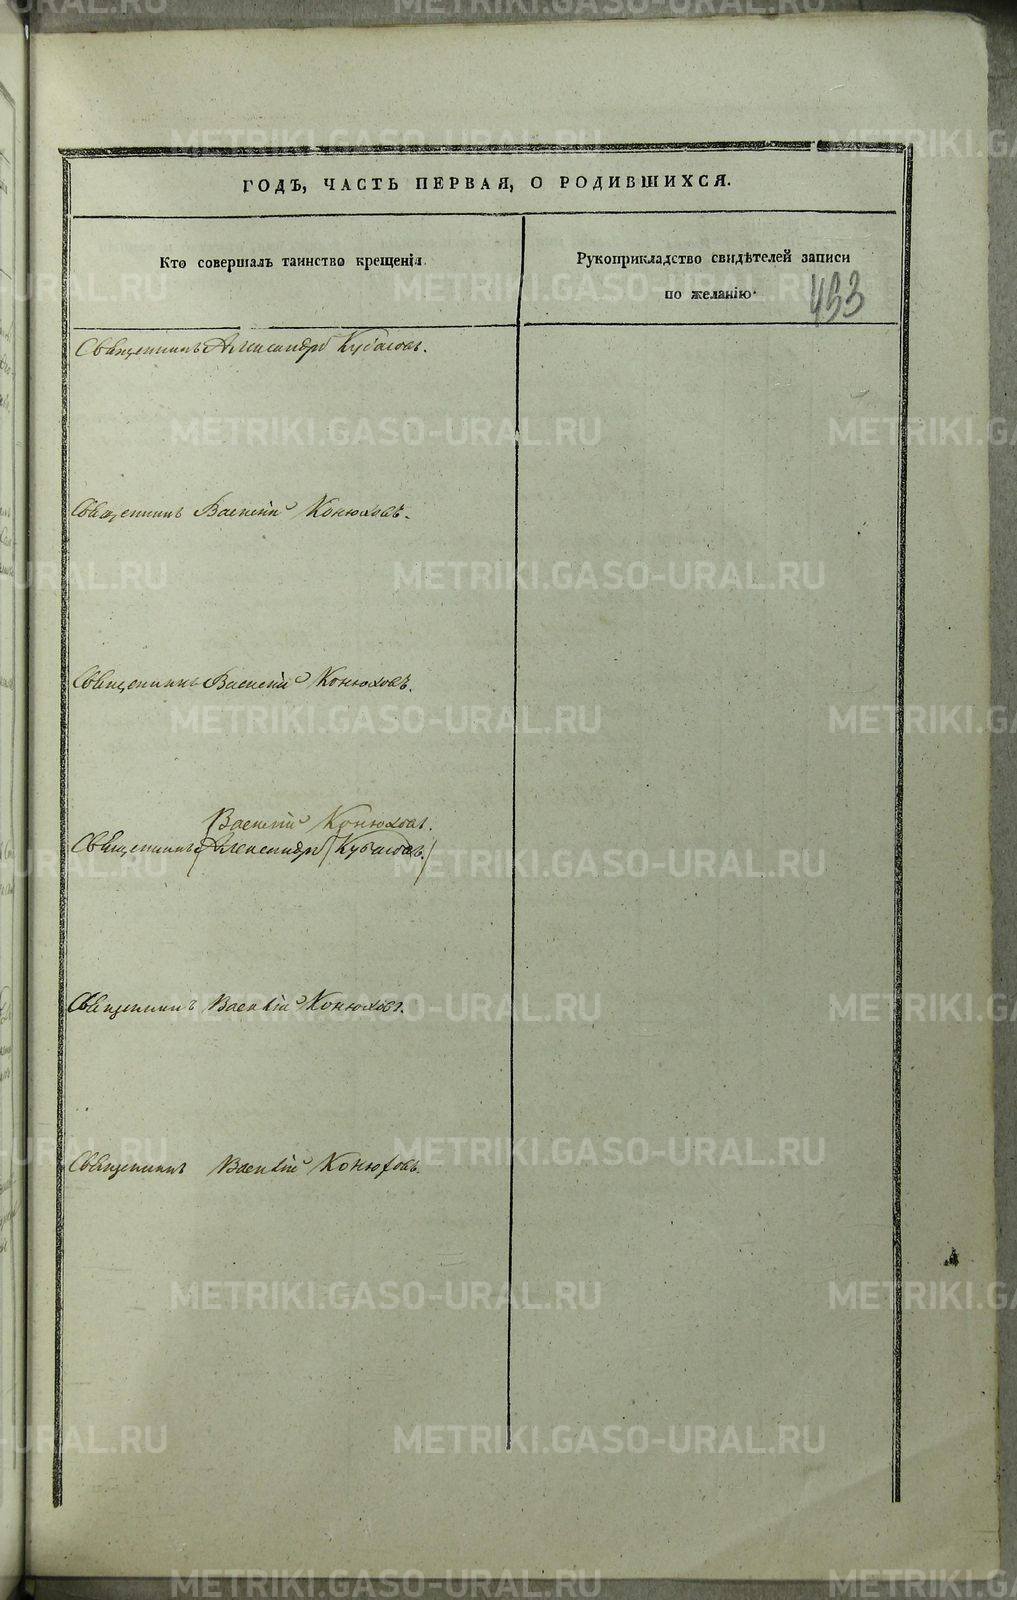 ГОДЪ, ЧАСТЬ ПЕРВАЯ, О РОДИВШИХСЯ.
Кто совершалъ таинство крещенія.
Рукоприкладство свидѣтелей записи
по желанію.
433
Священникъ Александръ Кубасовъ.
Священникъ Василій Конюховъ.
Священникъ Василій Конюховъ.
Василій Конюховъ.
Священникъ (Александръ Кубасовъ.)
Священникъ Василій Конюховъ.
Священникъ Василій Конюховъ.
METRIKI.GASO-URAL.RU